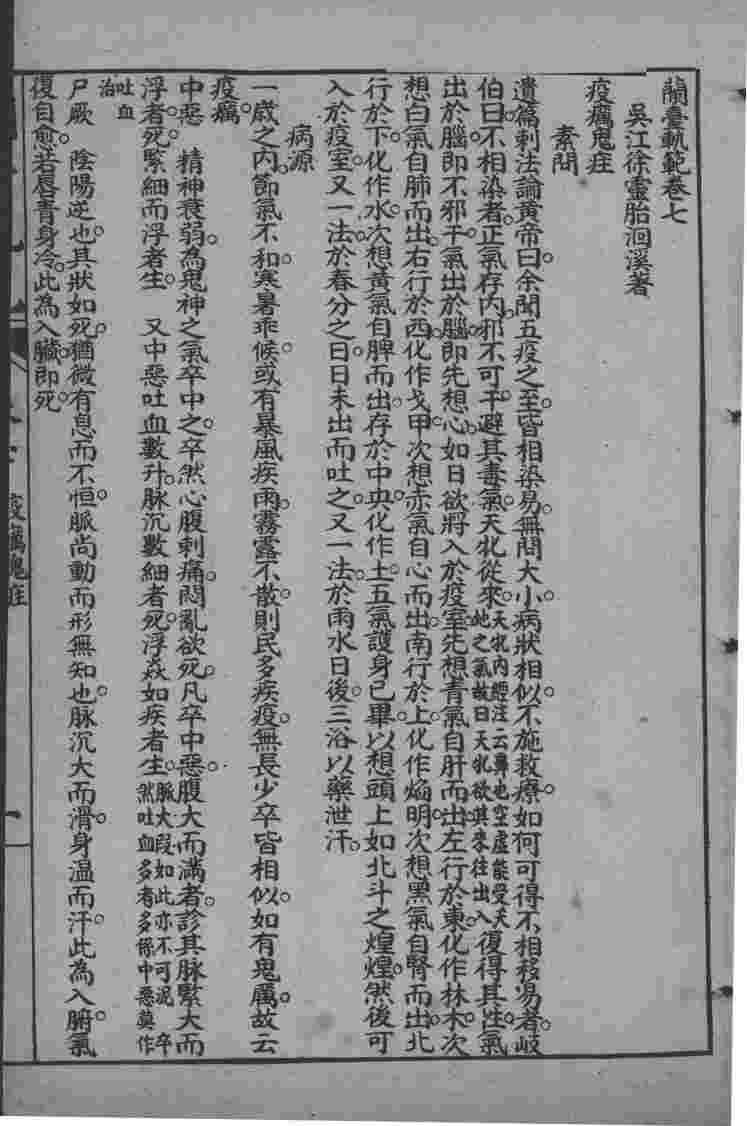 蘭臺軌範卷七
吳江徐靈胎洄溪著
疫癘鬼疰
素問
遺篇刺法論黃帝曰余聞五疫之至皆相染易。無問大小。病狀相似。不施救療。如何可得不相移易者。岐
伯曰。不相染者。正氣存內。邪不可干。避其毒氣。天牝從來。天牝內經注云鼻也空虛能受天地之氣故曰天牝欲其來往出入復得其往。氣
出於腦。即不邪干。氣出於腦。即先想心如日。欲將入於疫室。先想青氣自肝而出。左行於東。化作林木。次
想白氣自肺而出。右行於西。化作戈甲。次想赤氣自心而出。南行於上。化作焰明。次想黑氣自腎而出。北
行於下。化作水。次想黃氣自脾而出。存於中央。化作土。五氣護身已畢。以想頭上如北斗之煌煌。然後可
入於疫室。又一法。於春分之日。日未出而吐之。又一法。於雨水日後。三浴以藥泄汗。
病源
一歲之內。節氣不和。寒暑乖候。或有暴風疾雨。霧露不散。則民多疾疫。無長少卒皆相似。如有鬼厲。故云
疫癘。
中惡 精神衰弱。為鬼神之氣卒中之。卒然心腹刺痛。悶亂欲死。凡卒中惡。腹大而滿者。診其脈緊大而
浮者死。緊細而浮者生。 又中惡吐血數升。脉沉數細者死。浮焱如疾者生。脈大段如此亦不可泥 卒然吐血多者多係中惡莫作
吐血治
尸厥 陰陽逆也。其狀如死。猶微有息而不恒。脈尚動而形無知也。脉沉大而滑。身温而汗。此為入腑。氣
復自愈。若唇青身冷。此為入臟。即死。
疫癘鬼疰
一